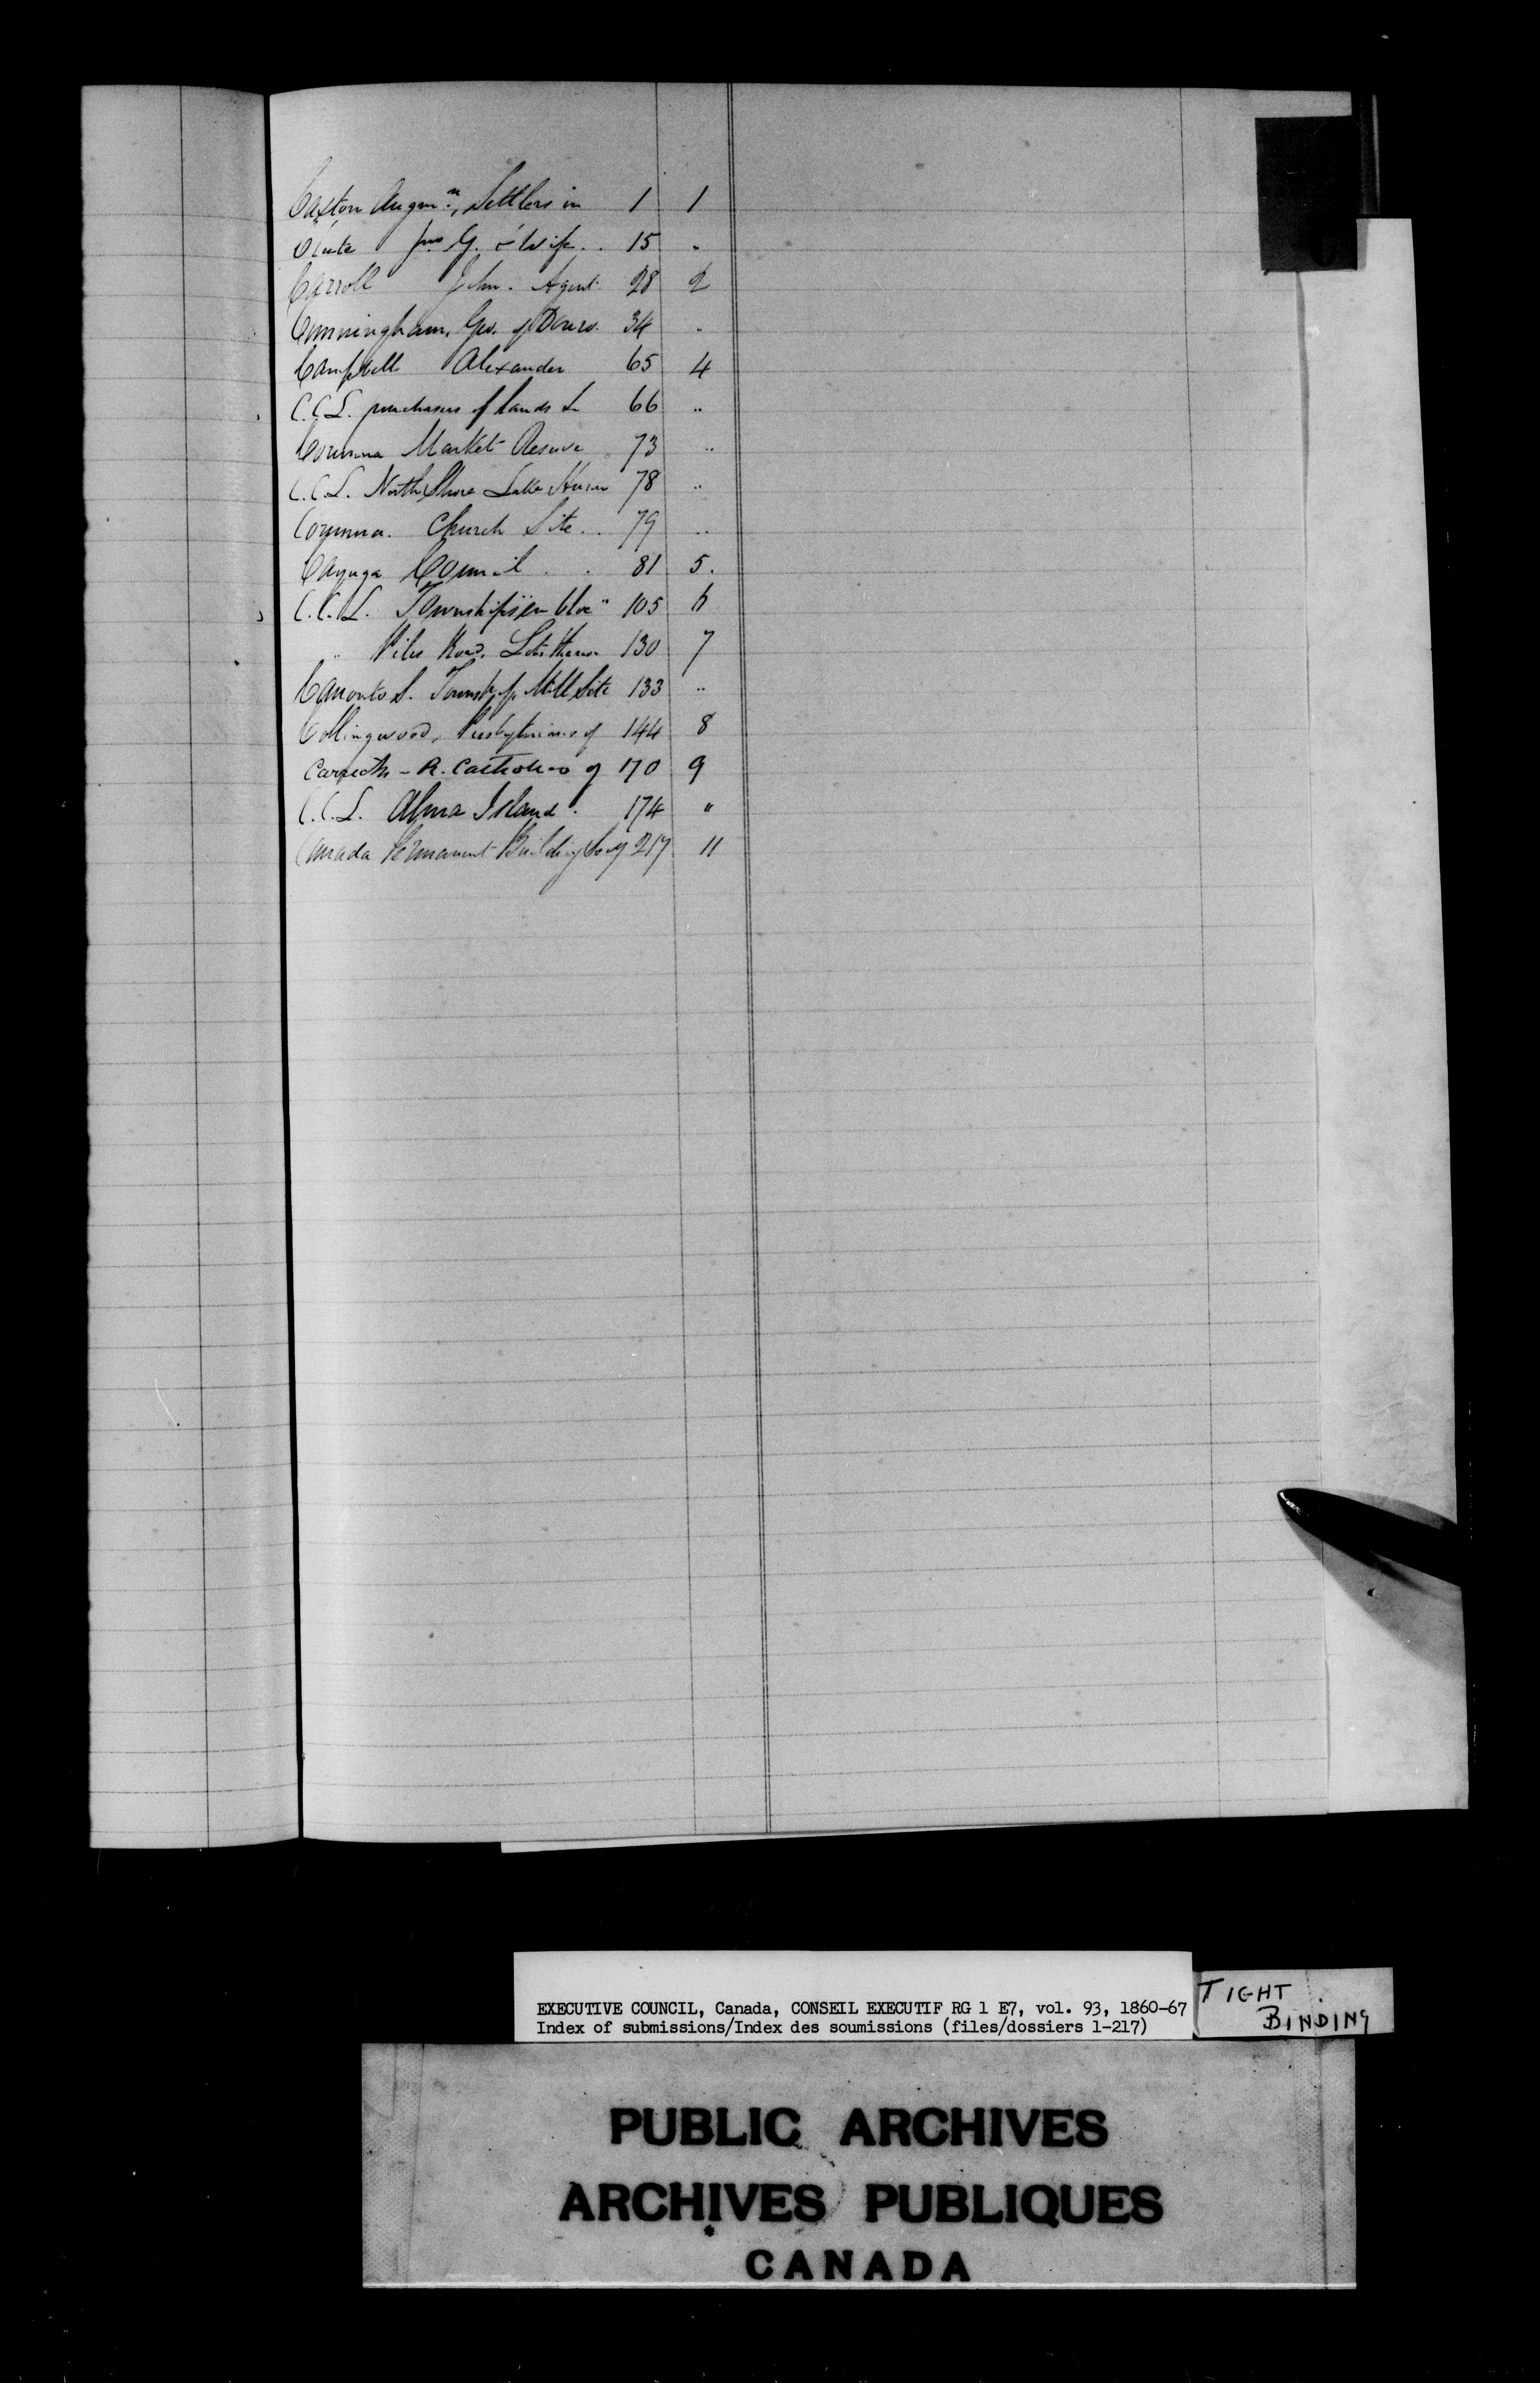 Caxton Augmn, Settlers in 1 1
Clute Jno G. & Wife .. 15 "
Carroll John. Agent 28 2
Cunningham, Geo. of Douro. 34 "
Campbell Alexander 65 4
C.C.L. purchasers of Lands 66 "
Corunna Market Reserve 73 "
C.C.L. North Shore Lake Huron 78 "
Corunna. Church Site .. 79 "
Cayuga Council . . 81 5.
C.C.L. Townships "en bloc" 105 6
" Piles Road. Lots thereon 130 7
Canonto S. Township Mill Site 133 "
Collingwood, Presbyterians of 144 8
Carrick - R. Catholics of 170 9
C.C.L. Alma Island . 174 "
Canada Permanent Building Socy 217 11
EXECUTIVE COUNCIL, Canada, CONSEIL EXECUTIF RG 1 E7, vol. 93, 1860-67
Index of submissions/Index des soumissions (files/dossiers 1-217)
TIGHT
BINDING
PUBLIC ARCHIVES
ARCHIVES PUBLIQUES
CANADA